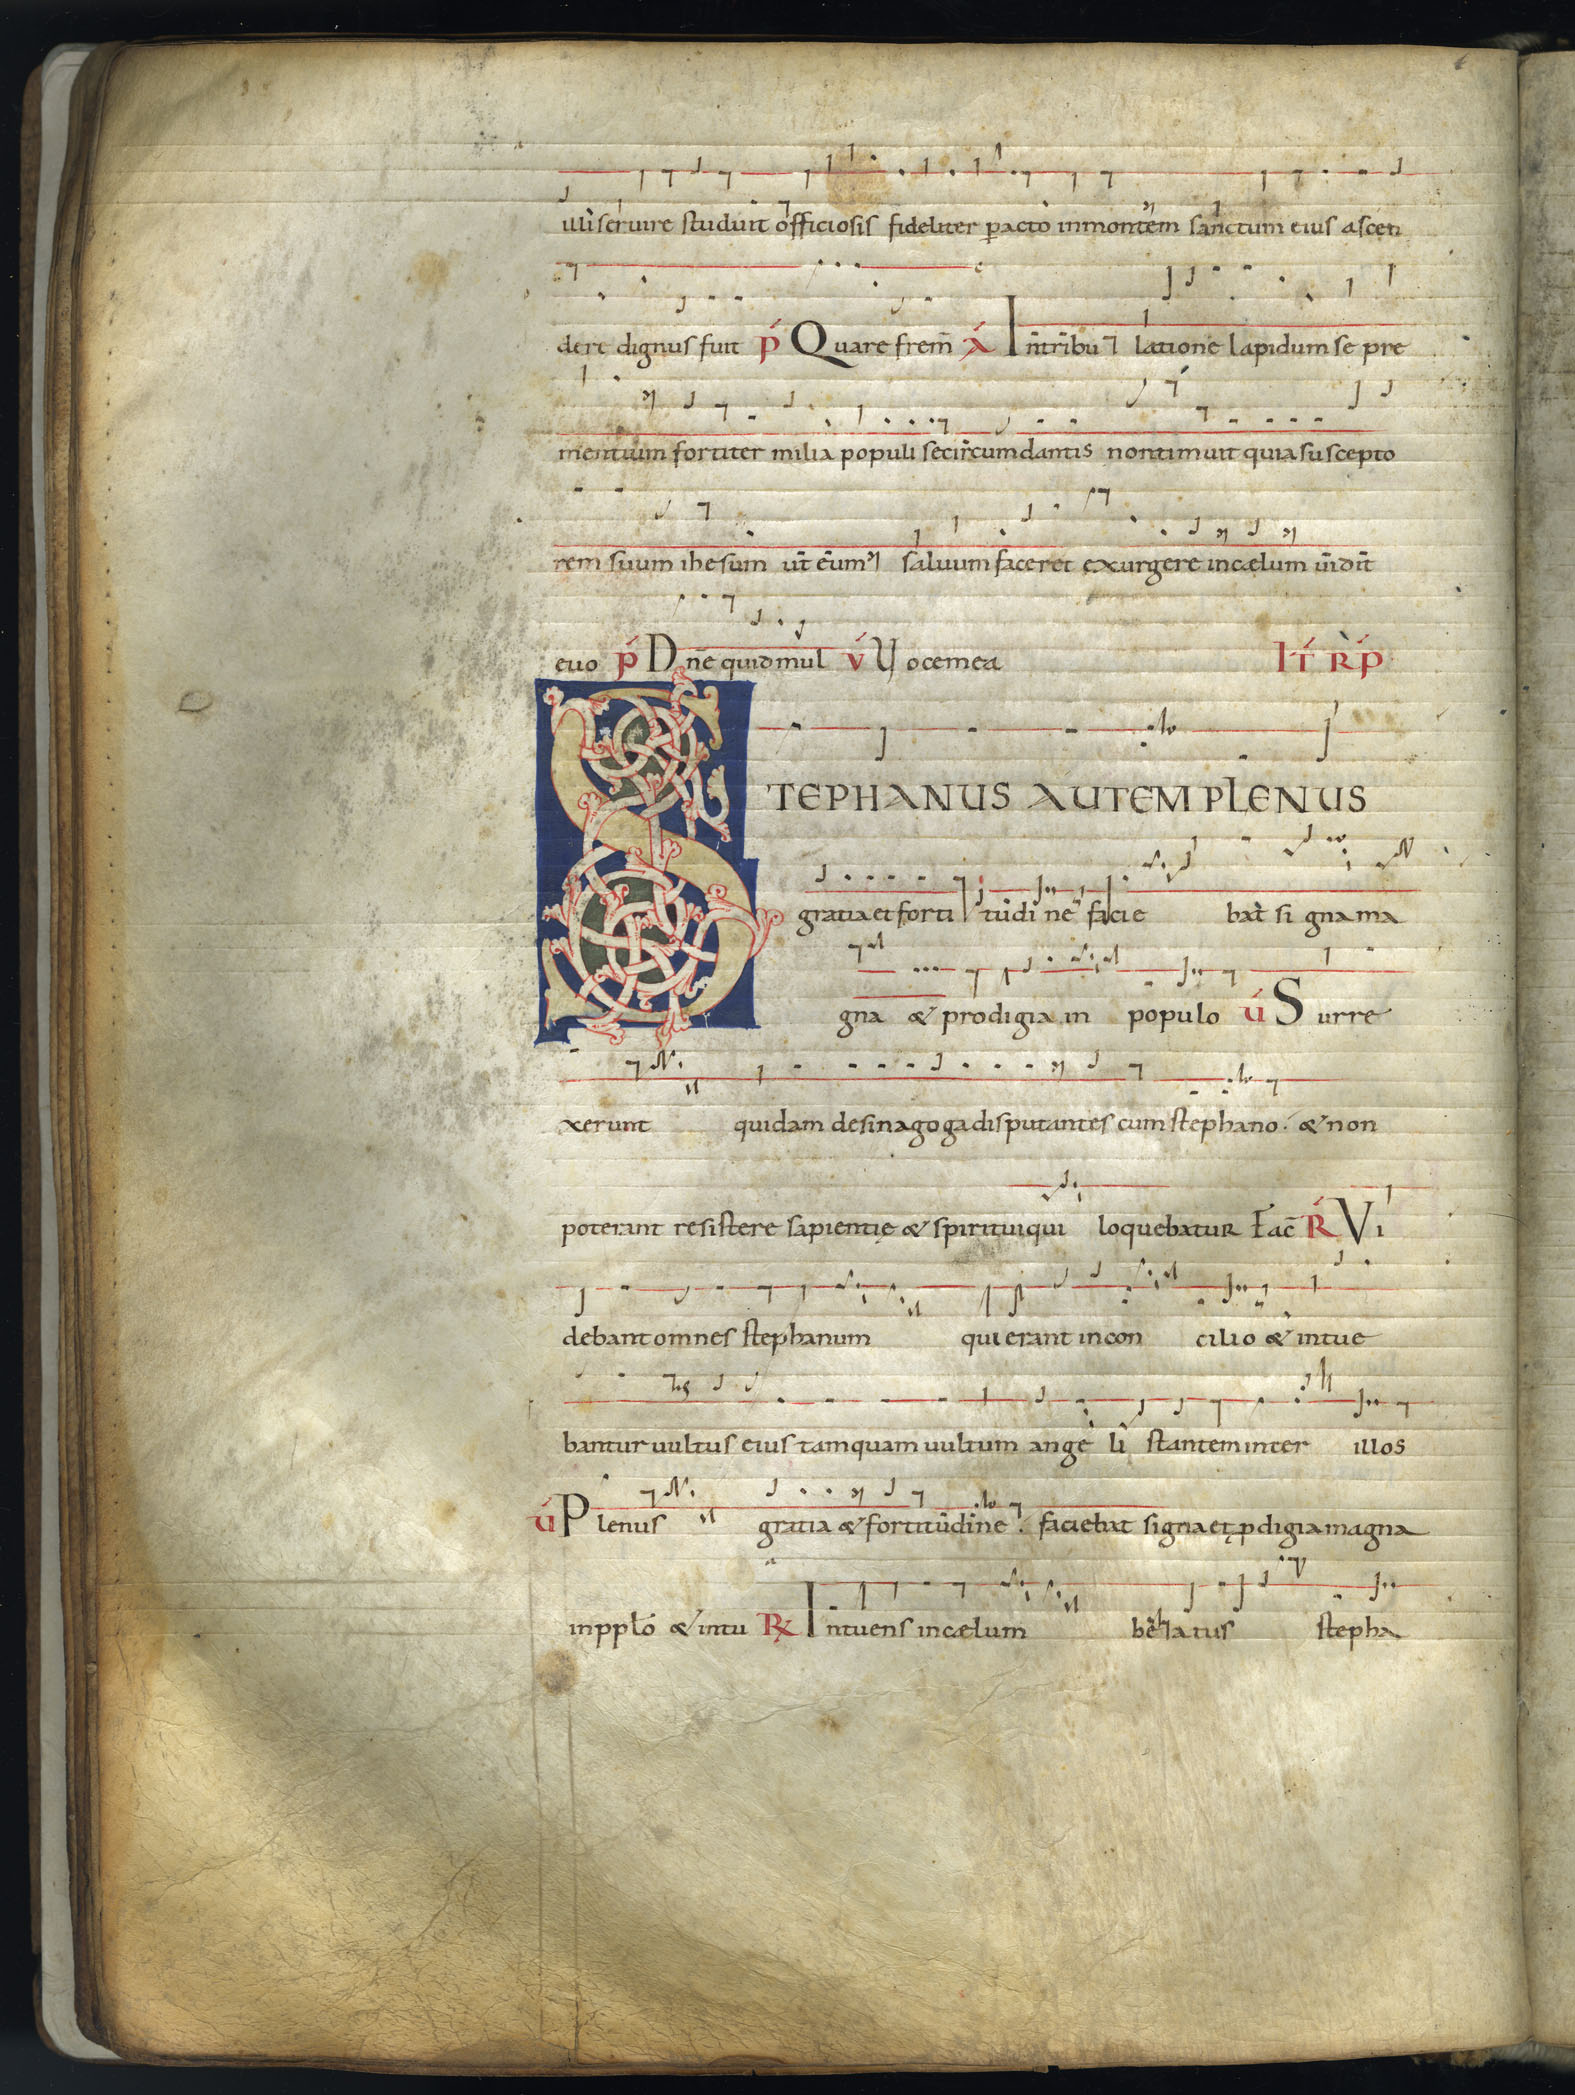 illi seruire studuit officiosis fideliter pacto inmontem sanctum eius ascen
dere dignus fuit p Quare frem̄ A Intribu latione lapidum se pre
mentium fortiter milia populi secircumdantis nontimuit quia suscepto
rem suum ihesum ut eum saluum faceret exurgere incælum uidit
euo p Dn̄e quid mul v Uocemea IT R P
STEPHANUS AUTEM PLENUS
gratia et forti tudi ne facie bat si gna ma
gna & prodigia in populo u Surre
xerunt quidam desinagoga disputantes cum stephano. & non
poterant resistere sapientię & spirituiqui loquebatur Fac̄ R Vi
debant omnes stephanum qui erant incon cilio & intue
bantur uultus eius tamquam uultum ange li stantem inter illos
u Plenus gratia & fortitudine. faciebat signa et pdigia magna
inpplo & intu R Intuens incælum be atus stepha